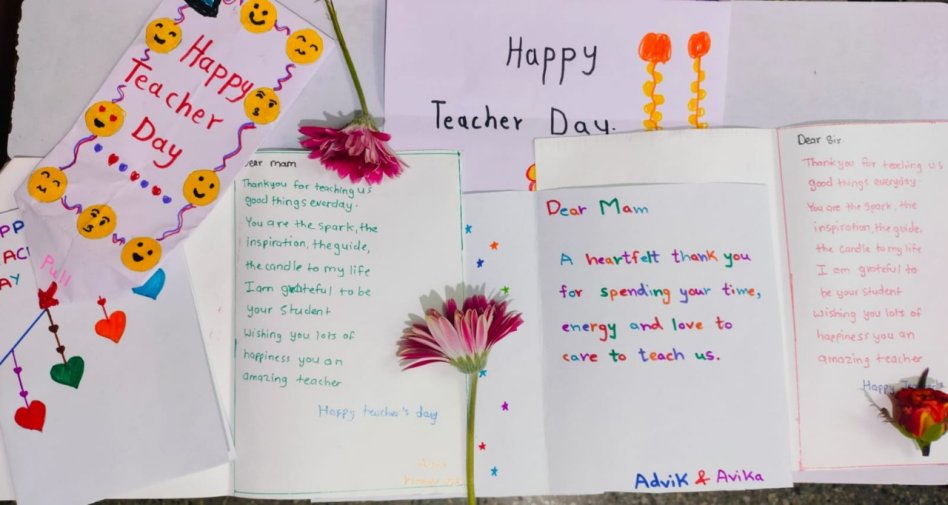 Happy
Teacher
Day
Pull
Happy
Teacher Day.
Dear mam
Thankyou for teaching us
good things everday.
You are the spark, the
inspiration, the guide,
the candle to my life
I am grateful to be
your student
wishing you lots of
happiness you an
amazing teacher
Happy teacher's day
Dear Mam
A heartfelt thank you
for spending your time,
energy and love to
care to teach us.
Advik & Avika
Dear Sir
Thankyou for teaching us
good things everyday.
You are the spark, the
inspiration, the guide,
the candle to my life
I am grateful to
be your student
wishing you lots of
happiness you an
amazing teacher
Happy